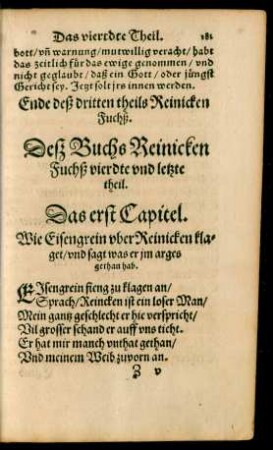 Das vierdte Theil. 181
bott/vñ warnung/mutwillig veracht/habt
das zeitlich für das ewige genommen/vnd
nicht geglaubt/daß ein Gott/oder jüngst
Gericht sey. Jetzt solt jrs innen werden.
Ende deß dritten theils Reinicken
Fuchß.
Deß Buchs Reinicken
Fuchß vierdte vnd letzte
theil.
Das erst Capitel.
Wie Eisengrein vber Reinicken kla-
get/vnd sagt was er jm arges
gethan hab.
EIsengrein fieng zu klagen an/
Sprach/Reincken ist ein loser Man/
Mein gantz geschlecht er hie verspricht/
Vil grosser schand er auff vns ticht.
Er hat mir manch vnthat gethan/
Vnd meinem Weib zuvorn an.
Z v